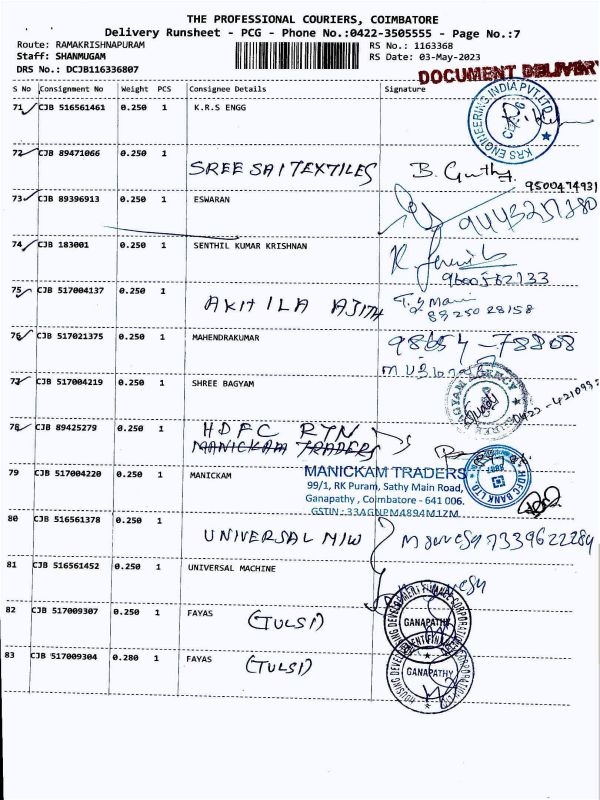 THE PROFESSIONAL COURIERS, COIMBATORE
Delivery Runsheet - PCG - Phone No.:0422-3505555 - Page No.:7
Route: RAMAKRISHNAPURAM RS No.: 1163368
Staff: SHANMUGAM RS Date: 03-May-2023
DRS No.: DCJB116336807
DOCUMENT DELIVERY
S No Consignment No Weight PCS Consignee Details Signature
71 CJB 516561461 0.250 1 K.R.S ENGG
KRS ENGINEERING INDIA PVT.LTD.
72 CJB 89471066 0.250 1 SREE SAI TEXTILES
9500474931
73 CJB 89396913 0.250 1 ESWARAN
74 CJB 183001 0.250 1 SENTHIL KUMAR KRISHNAN
75 CJB 517004137 0.250 1 AKHILA AJITH
89250 28158
76 CJB 517021375 0.250 1 MAHENDRAKUMAR
98654-78808
77 CJB 517004219 0.250 1 SHREE BAGYAM
78 CJB 89425279 0.250 1 HDFC RTN
MANICKAM TRADERS
HDFC BANK LTD
79 CJB 517004220 0.250 1 MANICKAM
MANICKAM TRADERS
99/1, RK Puram, Sathy Main Road,
Ganapathy, Coimbatore - 641 006.
GSTIN : 33AGNPM4894M1ZM
80 CJB 516561378 0.250 1 UNIVERSAL M/W
7339622284
81 CJB 516561452 0.250 1 UNIVERSAL MACHINE
82 CJB 517009307 0.250 1 FAYAS (TULSI)
HOUSING DEVELOPMENT FINANCE CORPORATION
GANAPATHY
83 CJB 517009304 0.280 1 FAYAS (TULSI)
HOUSING DEVELOPMENT FINANCE CORPORATION LTD
GANAPATHY